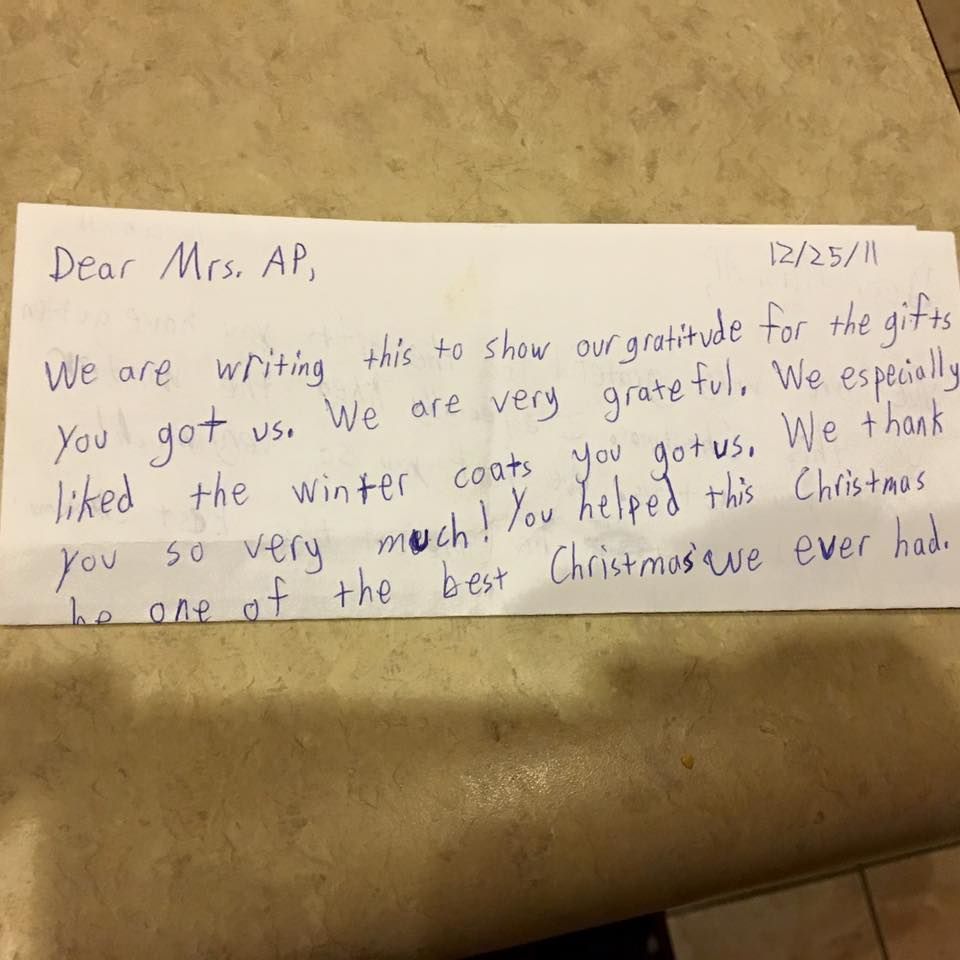 Dear Mrs. AP, 12/25/11
We are writing this to show our gratitude for the gifts
you got us. We are very grateful. We especially
liked the winter coats you got us. We thank
you so very much! You helped this Christmas
be one of the best Christmas' we ever had.